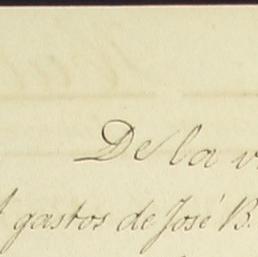 De la
gastos de José B.